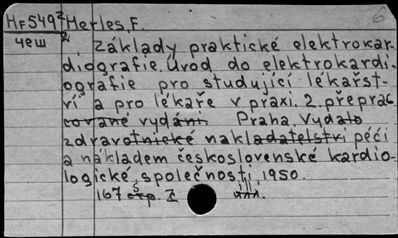 HF549² Herles, F. 6
чеш 2
Základy praktické elektrokar-
diografie. Úvod do elektrokardi-
ografie pro studující lékařst-
ví a pro lékaře v praxi. 2. přeprac
cované vydání. Praha. Vydalo
zdravotnické nakladatelství péčí
a nákladem československé kardio-
logické společnosti, 1950.
167 стр. I илл.